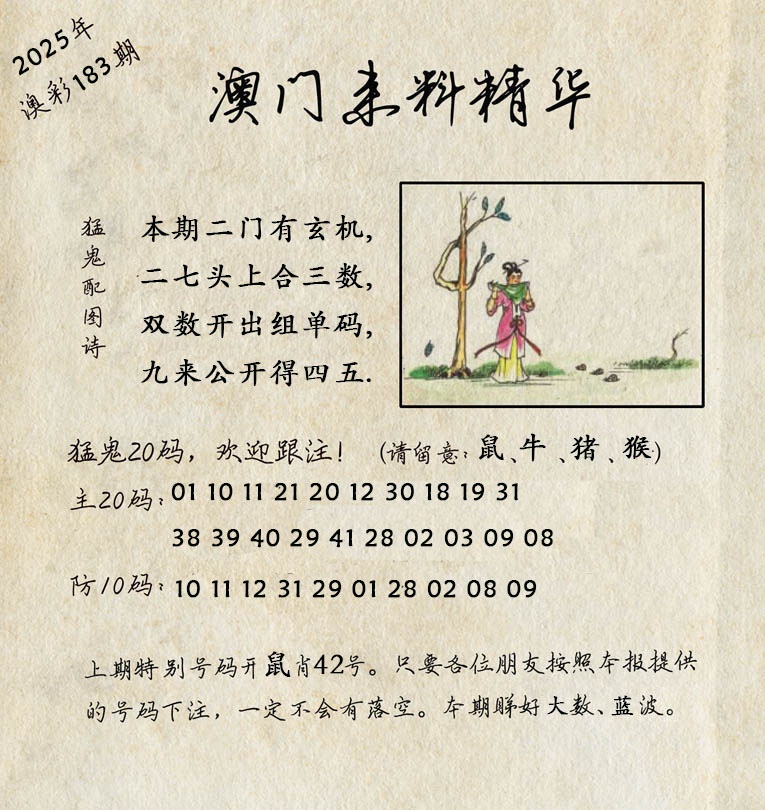 2025年
澳彩183期
澳门来料精华
猛鬼配图诗
本期二门有玄机,
二七头上合三数,
双数开出组单码,
九来公开得四五.
猛鬼20码，欢迎跟注！（请留意：鼠、牛、猪、猴）
主20码：01 10 11 21 20 12 30 18 19 31
38 39 40 29 41 28 02 03 09 08
防10码：10 11 12 31 29 01 28 02 08 09
上期特别号码开鼠肖42号。只要各位朋友按照本报提供
的号码下注，一定不会有落空。本期睇好大数、蓝波。